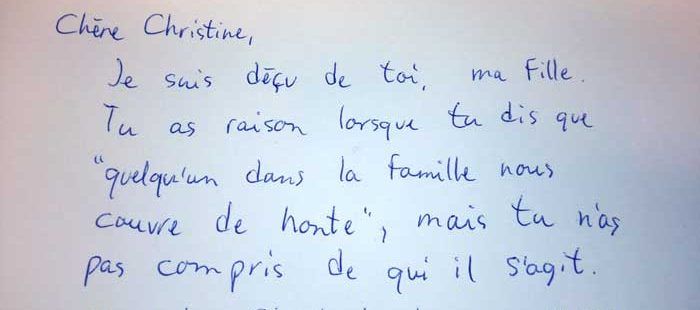 Chère Christine,
Je suis déçu de toi, ma fille.
Tu as raison lorsque tu dis que
"quelqu'un dans la famille nous
couvre de honte", mais tu n'as
pas compris de qui il s'agit.